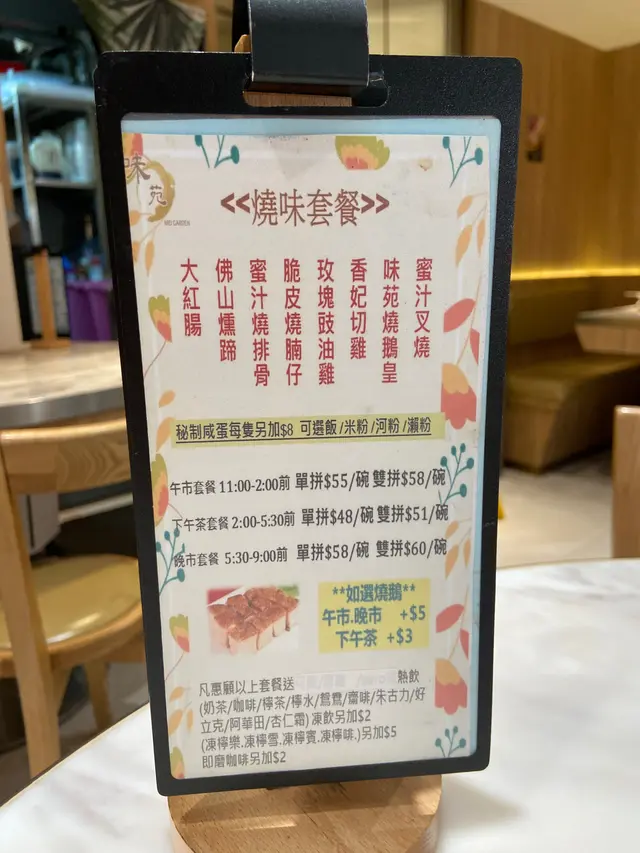 味苑
<<燒味套餐>>
蜜汁叉燒
味苑燒鵝皇
香妃切雞
玫瑰豉油雞
脆皮燒腩仔
蜜汁燒排骨
佛山燻蹄
大紅腸
秘制咸蛋每隻另加$8 可選飯/米粉/河粉/瀨粉
午市套餐 11:00-2:00前 單拼$55/碗 雙拼$58/碗
下午茶套餐 2:00-5:30前 單拼$48/碗 雙拼$51/碗
晚市套餐 5:30-9:00前 單拼$58/碗 雙拼$60/碗
**如選燒鵝**
午市.晚市 +$5
下午茶 +$3
凡惠顧以上套餐送 熱飲
(奶茶/咖啡/檸茶/檸水/鴛鴦/齋啡/朱古力/好
立克/阿華田/杏仁霜) 凍飲另加$2
(凍檸樂.凍檸雪.凍檸賓.凍檸啡.)另加$5
即磨咖啡另加$2